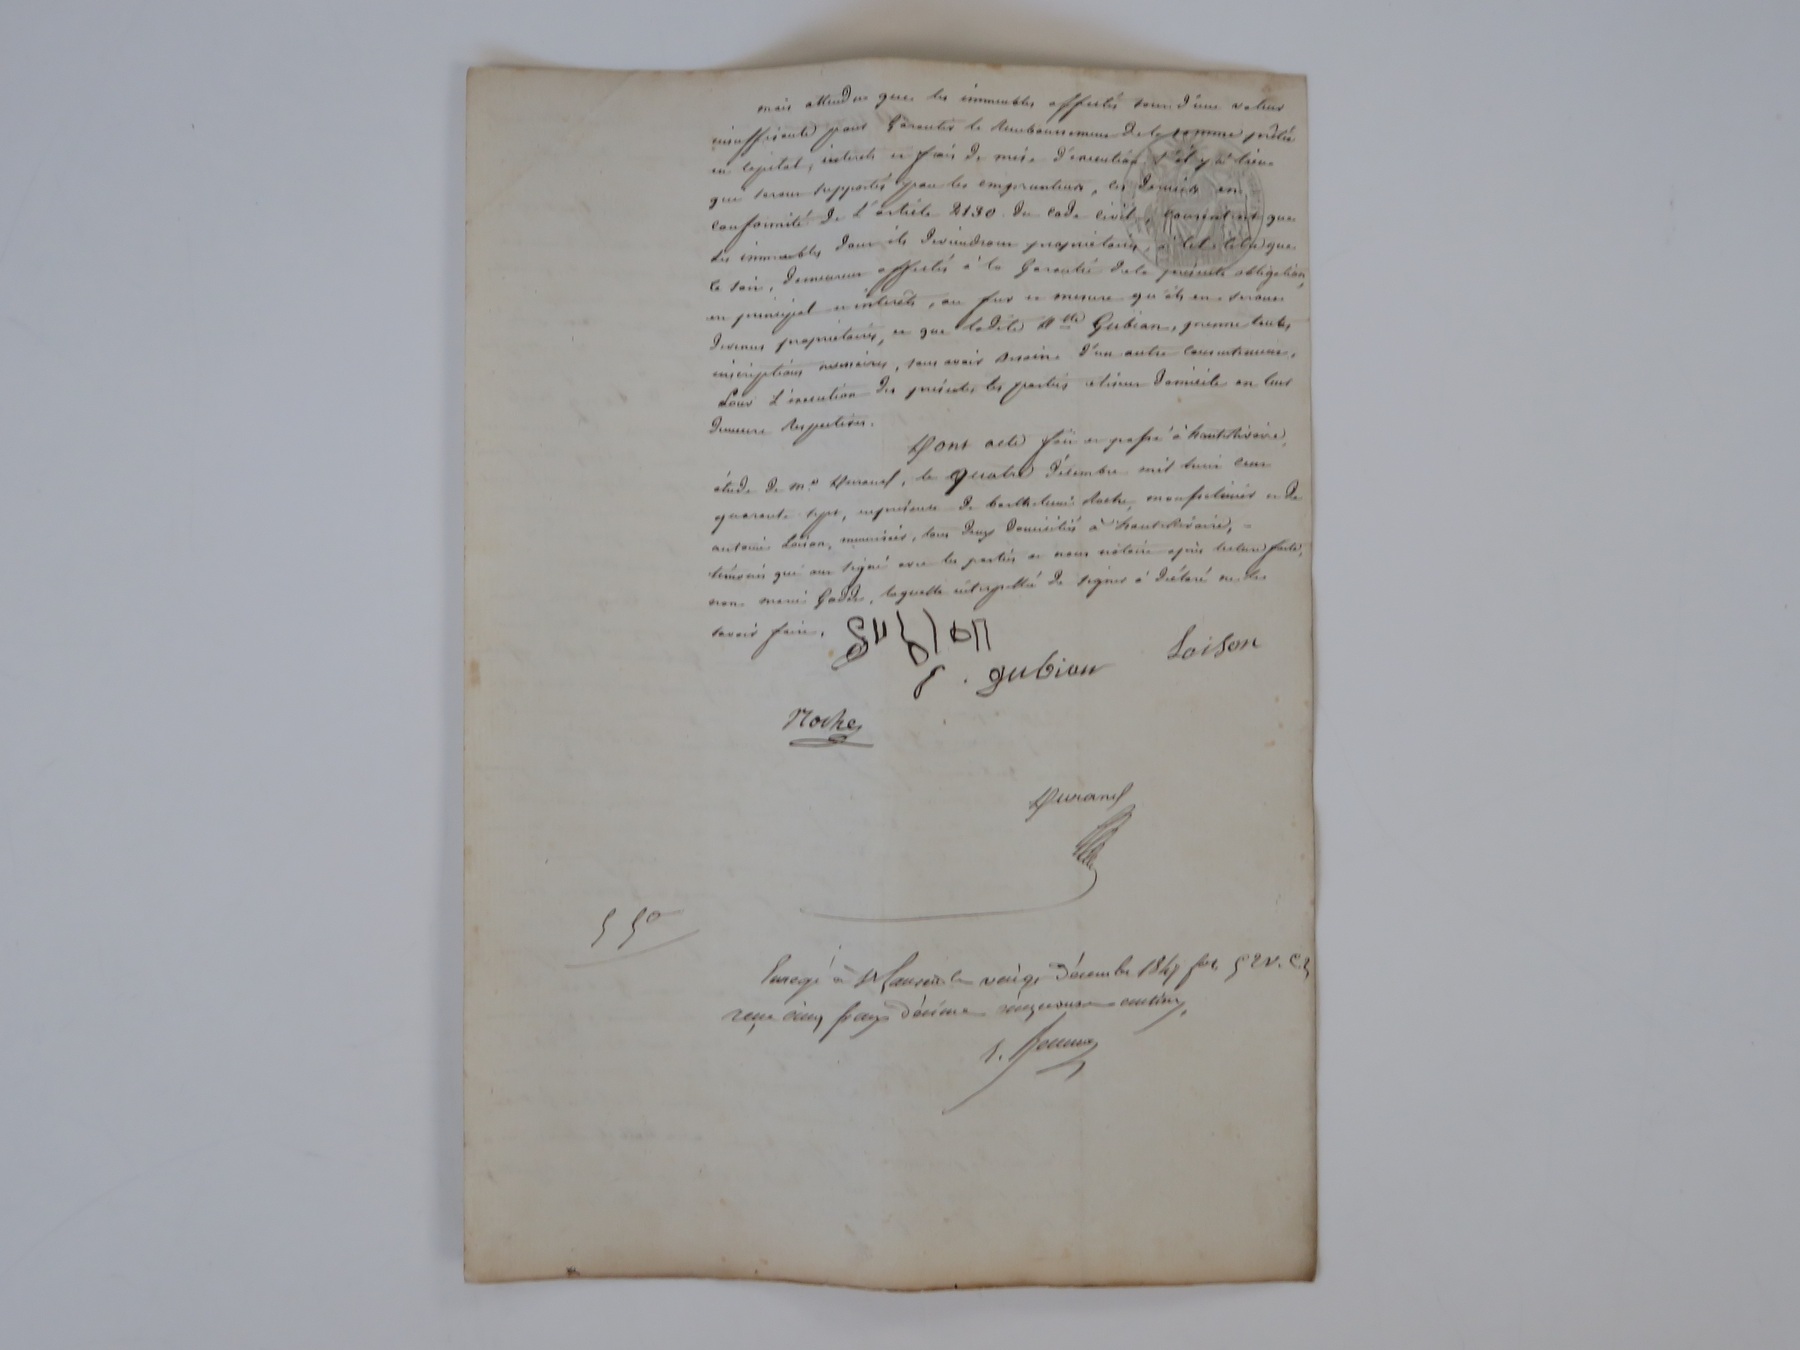 mais attendu que les immeubles affectés sont d'une valeur
insuffisante pour Garantir le Remboursement de la somme prêtée
en capital, intérêts et frais de mise d'exécution s'il y a lieu
qui seront supportés par les emprunteurs, ces derniers en
conformité de l'article 2130 du code civil, consentent que
les immeubles dont ils deviendront propriétaires, à tel titre que
ce soit, demeurent affectés à la Garantie de la présente obligation,
en principal et intérêts, au fur et mesure qu'ils en seront
devenus propriétaires, et que ladite Mlle Gubian, prenne toutes
inscriptions nécessaires, sans avoir besoin d'un autre consentement.
Pour l'exécution des présentes les parties élisent domicile en leur
demeure Respectives.
Dont acte fait et passé à hauteRivoire,
étude de Me Durand, le quatre décembre mil huit cent
quarante sept, en présence de Barthelemi Roche, et de
antoine Loison, menuisier, tous deux domiciliés à hauteRivoire,
témoins qui ont signé avec les parties et nous notaire après lecture faite,
non marie Gadde, laquelle interpellée de signer a déclaré ne le
savoir faire.
gubian
gubian
Loison
Roche
Durand
5 50
Enregé à le vingt décembre 1847 fol. 52 v. C.
reçu cinq francs décime cinquante centimes.